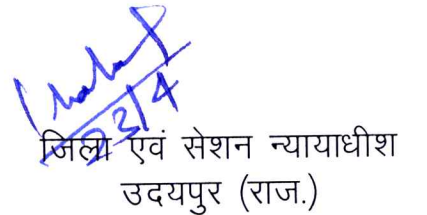 23/4
जिला एवं सेशन न्यायाधीश
उदयपुर (राज.)